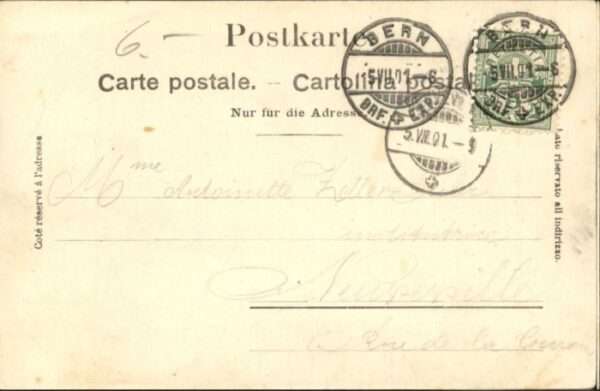 6.-
Postkarte
Carte postale. -- Cartolina postale
Nur für die Adresse
BERN
5.VII.01.-8
BRF. EXP.
BERN
5.VII.01.-8
BRF. EXP.
5.VII.01.-9
Coté réservé à l'adresse
Lato riservato all indirizzo.
Mme Antoinette
à
6 Rue de la